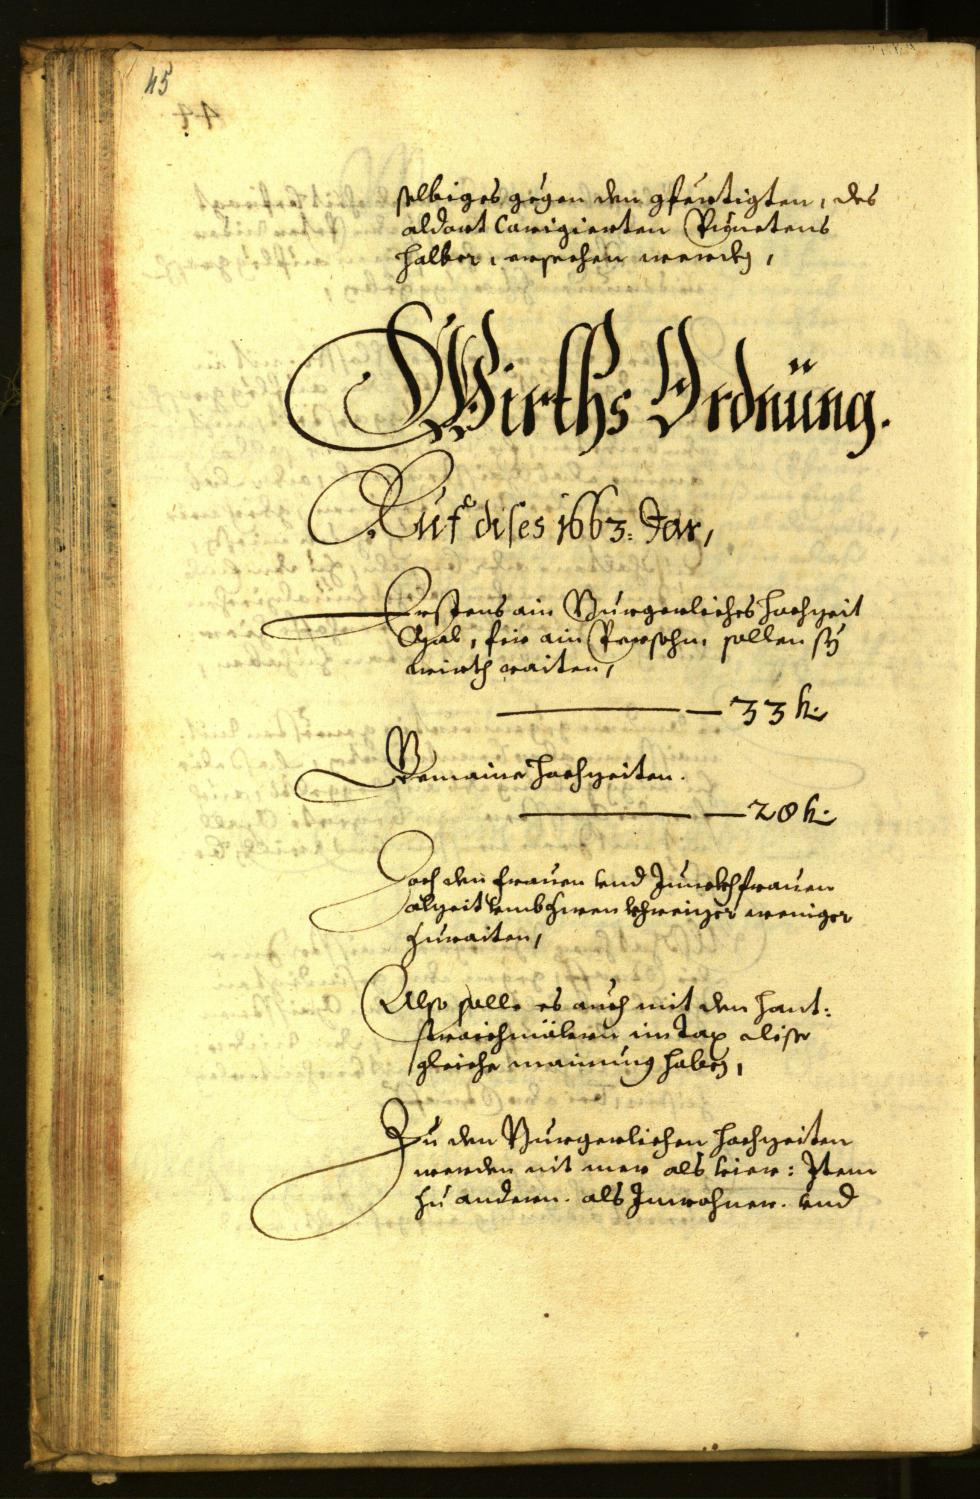 45
selbiges gegen den gfertigten, des
aldort Corrigierten Puncten
halber, ersechen werden,
Wirths Ordnung.
Auf dises 1663: Jar,
Erstens ain Burgerliches Hochzeit
Mal, für ain Persohn, sollen sÿ
wirth raiten,
33 k:
Gemaine Hochzeiten.
28 k:
Doch den frauen vnd Junckhfrauen
alzeit vmb Kreizer weniger
zuraiten,
Also solle es auch mit den Hant:
straichmälern im Tax dise
gleiche mainung haben,
Zu den Burgerlichen Hochzeiten
werden nit mer als vier: Item
zu andern. als Inwohner. vnd